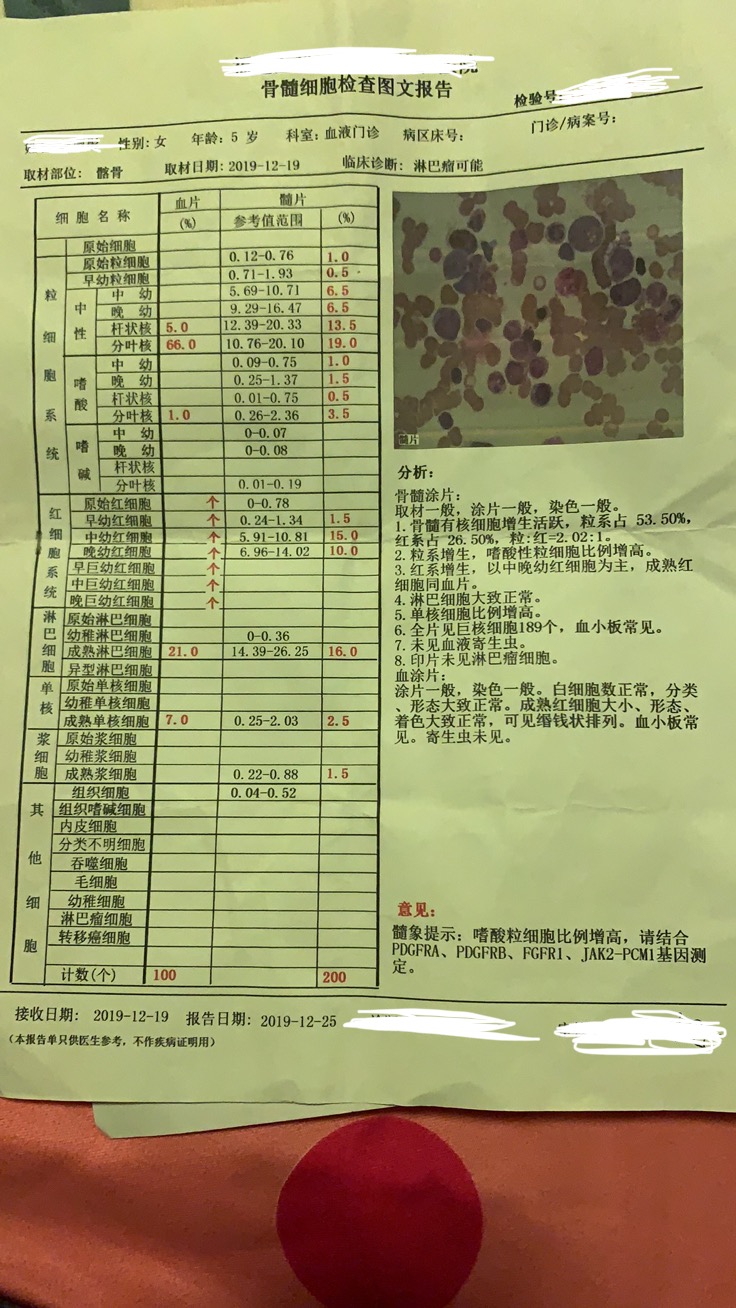 院
骨髓细胞检查图文报告
检验号:
性别:女 年龄:5 岁 科室:血液门诊 病区床号: 门诊/病案号:
取材部位: 髂骨 取材日期:2019-12-19 临床诊断: 淋巴瘤可能
细胞名称 血片(%) 髓片
参考值范围 (%)
原始细胞
粒细胞系统 原始粒细胞 0.12-0.76 1.0
早幼粒细胞 0.71-1.93 0.5
中性 中幼 5.69-10.71 6.5
晚幼 9.29-16.47 6.5
杆状核 5.0 12.39-20.33 13.5
分叶核 66.0 10.76-20.10 19.0
嗜酸 中幼 0.09-0.75 1.0
晚幼 0.25-1.37 1.5
杆状核 0.01-0.75 0.5
分叶核 1.0 0.26-2.36 3.5
嗜碱 中幼 0-0.07
晚幼 0-0.08
杆状核
分叶核 0.01-0.19
红细胞系统 原始红细胞 个 0-0.78
早幼红细胞 个 0.24-1.34 1.5
中幼红细胞 个 5.91-10.81 15.0
晚幼红细胞 个 6.96-14.02 10.0
早巨幼红细胞 个
中巨幼红细胞 个
晚巨幼红细胞 个
淋巴细胞 原始淋巴细胞
幼稚淋巴细胞 0-0.36
成熟淋巴细胞 21.0 14.39-26.25 16.0
异型淋巴细胞
单核 原始单核细胞
幼稚单核细胞
成熟单核细胞 7.0 0.25-2.03 2.5
浆细胞 原始浆细胞
幼稚浆细胞
成熟浆细胞 0.22-0.88 1.5
其他细胞 组织细胞 0.04-0.52
组织嗜碱细胞
内皮细胞
分类不明细胞
吞噬细胞
毛细胞
幼稚细胞
淋巴瘤细胞
转移癌细胞
计数(个) 100 200
髓片
分析:
骨髓涂片:
取材一般,涂片一般,染色一般。
1.骨髓有核细胞增生活跃,粒系占 53.50%,
红系占 26.50%,粒:红=2.02:1。
2.粒系增生,嗜酸性粒细胞比例增高。
3.红系增生,以中晚幼红细胞为主,成熟红
细胞同血片。
4.淋巴细胞大致正常。
5.单核细胞比例增高。
6.全片见巨核细胞189个,血小板常见。
7.未见血液寄生虫。
8.印片未见淋巴瘤细胞。
血涂片:
涂片一般,染色一般。白细胞数正常,分类
、形态大致正常。成熟红细胞大小、形态、
着色大致正常,可见缗钱状排列。血小板常
见。寄生虫未见。
意见:
髓象提示:嗜酸粒细胞比例增高,请结合
PDGFRA、PDGFRB、FGFR1、JAK2-PCM1基因测
定。
接收日期: 2019-12-19 报告日期:2019-12-25
(本报告单只供医生参考,不作疾病证明用)